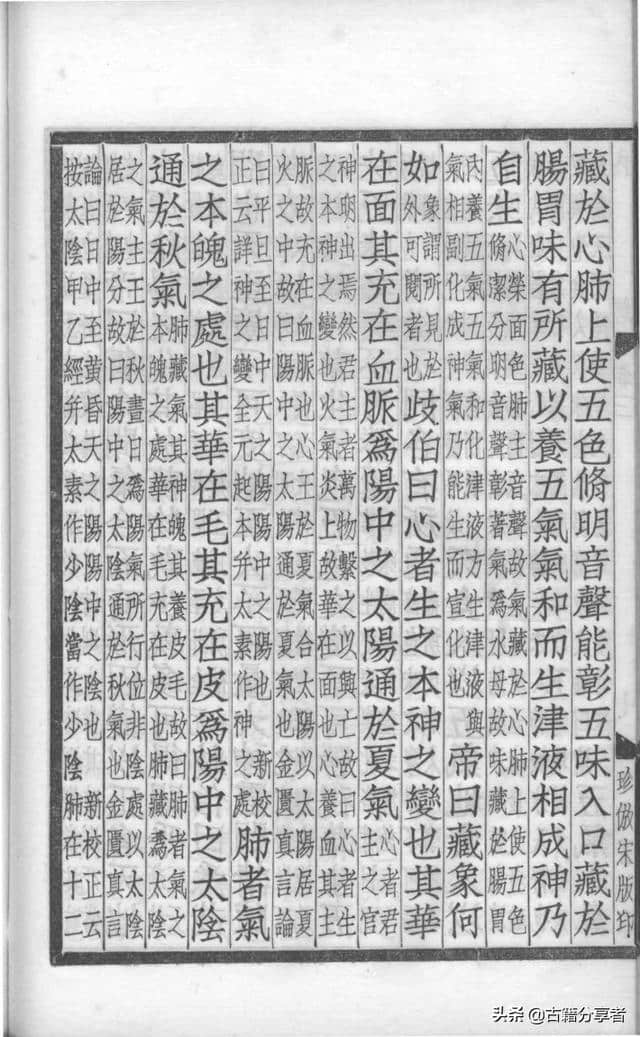 藏於心肺上使五色脩明音聲能彰五味入口藏於
腸胃味有所藏以養五氣氣和而生津液相成神乃
自生心榮面色肺主音聲故氣藏於心肺上使五色
脩潔分明音聲彰著氣爲水母故味藏於腸胃
內養五氣五氣和化津液方生津液與
氣相副化成神氣乃能生而宣化也帝曰藏象何
如象謂所見於
外可閱者也歧伯曰心者生之本神之變也其華
在面其充在血脈爲陽中之太陽通於夏氣心者君
主之官
神明出焉然君主者萬物繫之以興亡故曰心者生
之本神之變也火氣炎上故華在面也心養血其主
脈故充在血脈也心王於夏氣合太陽以太陽居夏
火之中故曰陽中之太陽通於夏氣也金匱真言論
曰平旦至日中天之陽陽中之陽也 新校
正云詳神之變全元起本并太素作神之處肺者氣
之本魄之處也其華在毛其充在皮爲陽中之太陰
通於秋氣肺藏氣其神魄其養皮毛故曰肺者氣之
本魄之處華在毛充在皮也肺藏爲太陰
之氣主王於秋晝日爲陽氣所行位非陰處以太陰
居於陽分故曰陽中之太陰通於秋氣也金匱真言
論曰日中至黃昏天之陽陽中之陰也 新校正云
按太陰甲乙經并太素作少陰當作少陰肺在十二
珍倣宋版印
头条 @古籍分享者